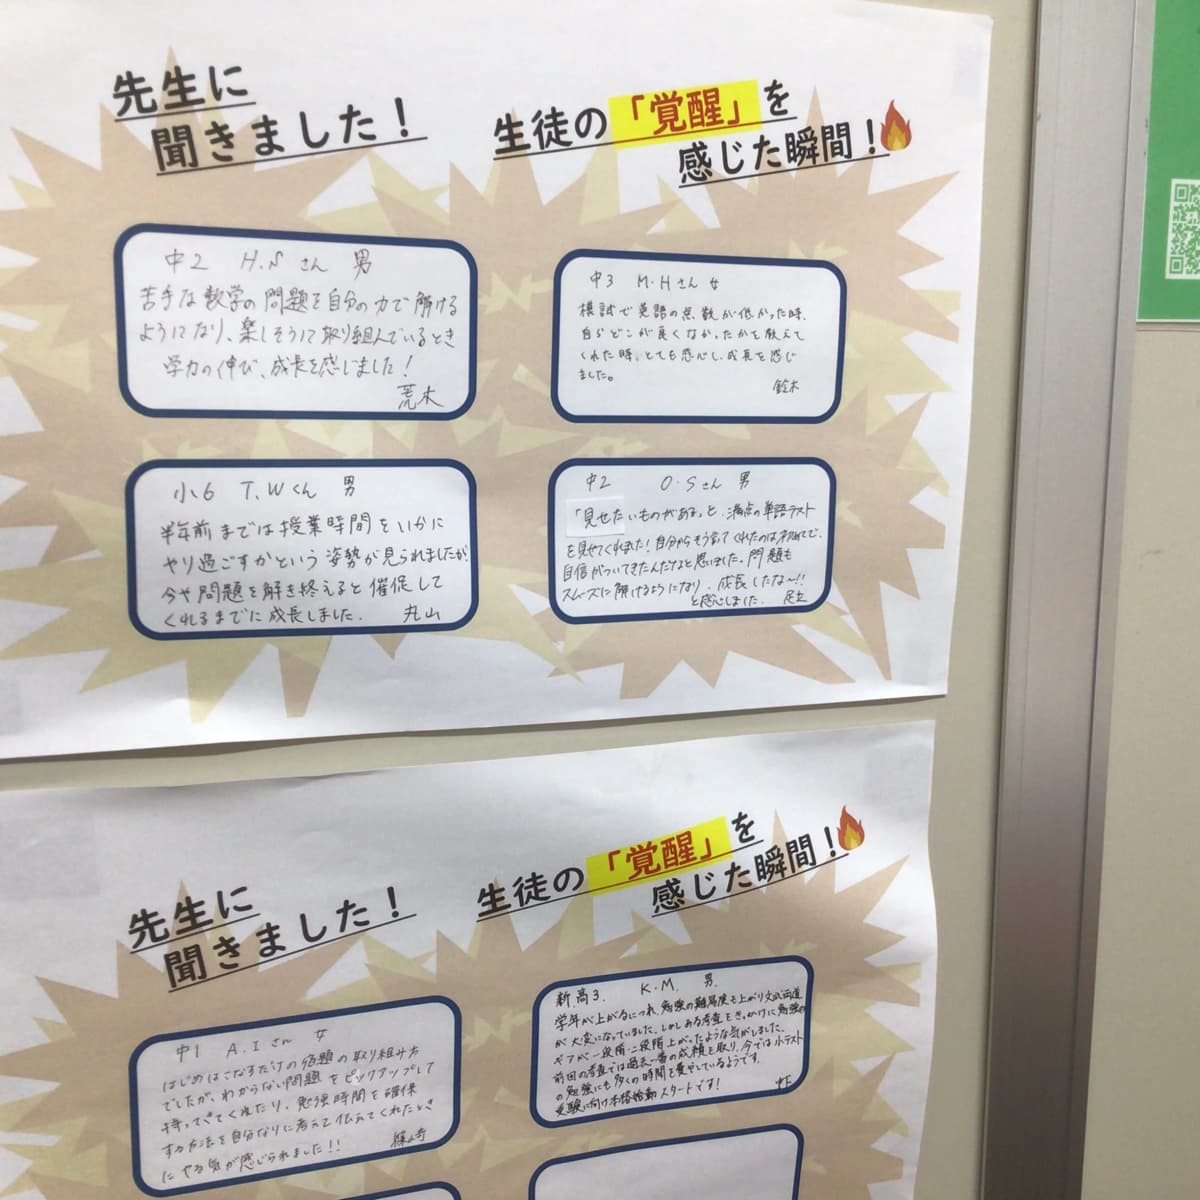 先生に
聞きました！
生徒の「覚醒」を
感じた瞬間！
中2 H.N さん 男
苦手な数学の問題を自分の力で解ける
ようになり、楽しそうに取り組んでいるとき
学力の伸び、成長を感じました！
荒木
中3 M.Hさん 女
模試で英語の点数が低かった時、
自らどこが良くなかったかを教えて
くれた時、とても感心し、成長を感じ
ました。
鈴木
小6 T.Wくん 男
半年前までは授業時間をいかに
やり過ごすかという姿勢が見られましたが、
今や問題を解き終えると催促して
くれるまでに成長しました。 丸山
中2 O.Sさん 男
「見せたいものがある」と、満点の単語テスト
を見せてくれました！自分からそう言ってくれたのは初めてで、
自信がついてきたんだなと思いました。問題も
スムーズに解けるようになり、成長したな〜!!
と感心しました。 足立
先生に
聞きました！
生徒の「覚醒」を
感じた瞬間！
中1 A.I さん 女
はじめはこなすだけの宿題の取り組み方
でしたが、わからない問題をピックアップして
持ってきてくれたり、勉強時間を確保
する方法を自分なりに考えて伝えてくれたとき
にやる気が感じられました!!
新高3. K.M. 男.
学年が上がるにつれ、勉強の難易度も上がり文武両道
が大変になっていました。しかしある考査をきっかけに勉強の
ギアが一段階・二段階上がったような気がしました。
前回の考査では過去一番の成績を取り、今では小テスト
の勉強にも多くの時間を費やしているようです。
受験に向け本格始動スタートです！